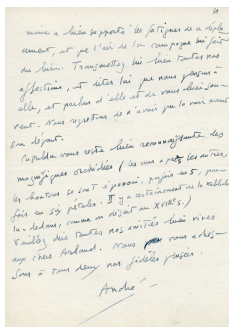 mame a bien supporté les fatigues de ce dépla-
cement, et que l'air de la campagne lui fait
du bien. Transmettez lui bien toutes nos
affections, et dites lui que nous pensons à
elle, et parlons d'elle et de vous bien sou-
vent. Nous regrettons de n'avoir pu la voir avant
son départ.
vous reste bien reconnaissante des
magnifiques orchidées (les uns après les autres,
les boutons se sont épanouis, parfois en 5, par-
fois en six pétales. Il y a certainement de la
là-dedans, comme on disait au XVIIIe s.)
Veuillez dire toutes nos amitiés bien vives
aux chers Arland. Nous vous adres-
sons à tous deux nos fidèles pensées.
André